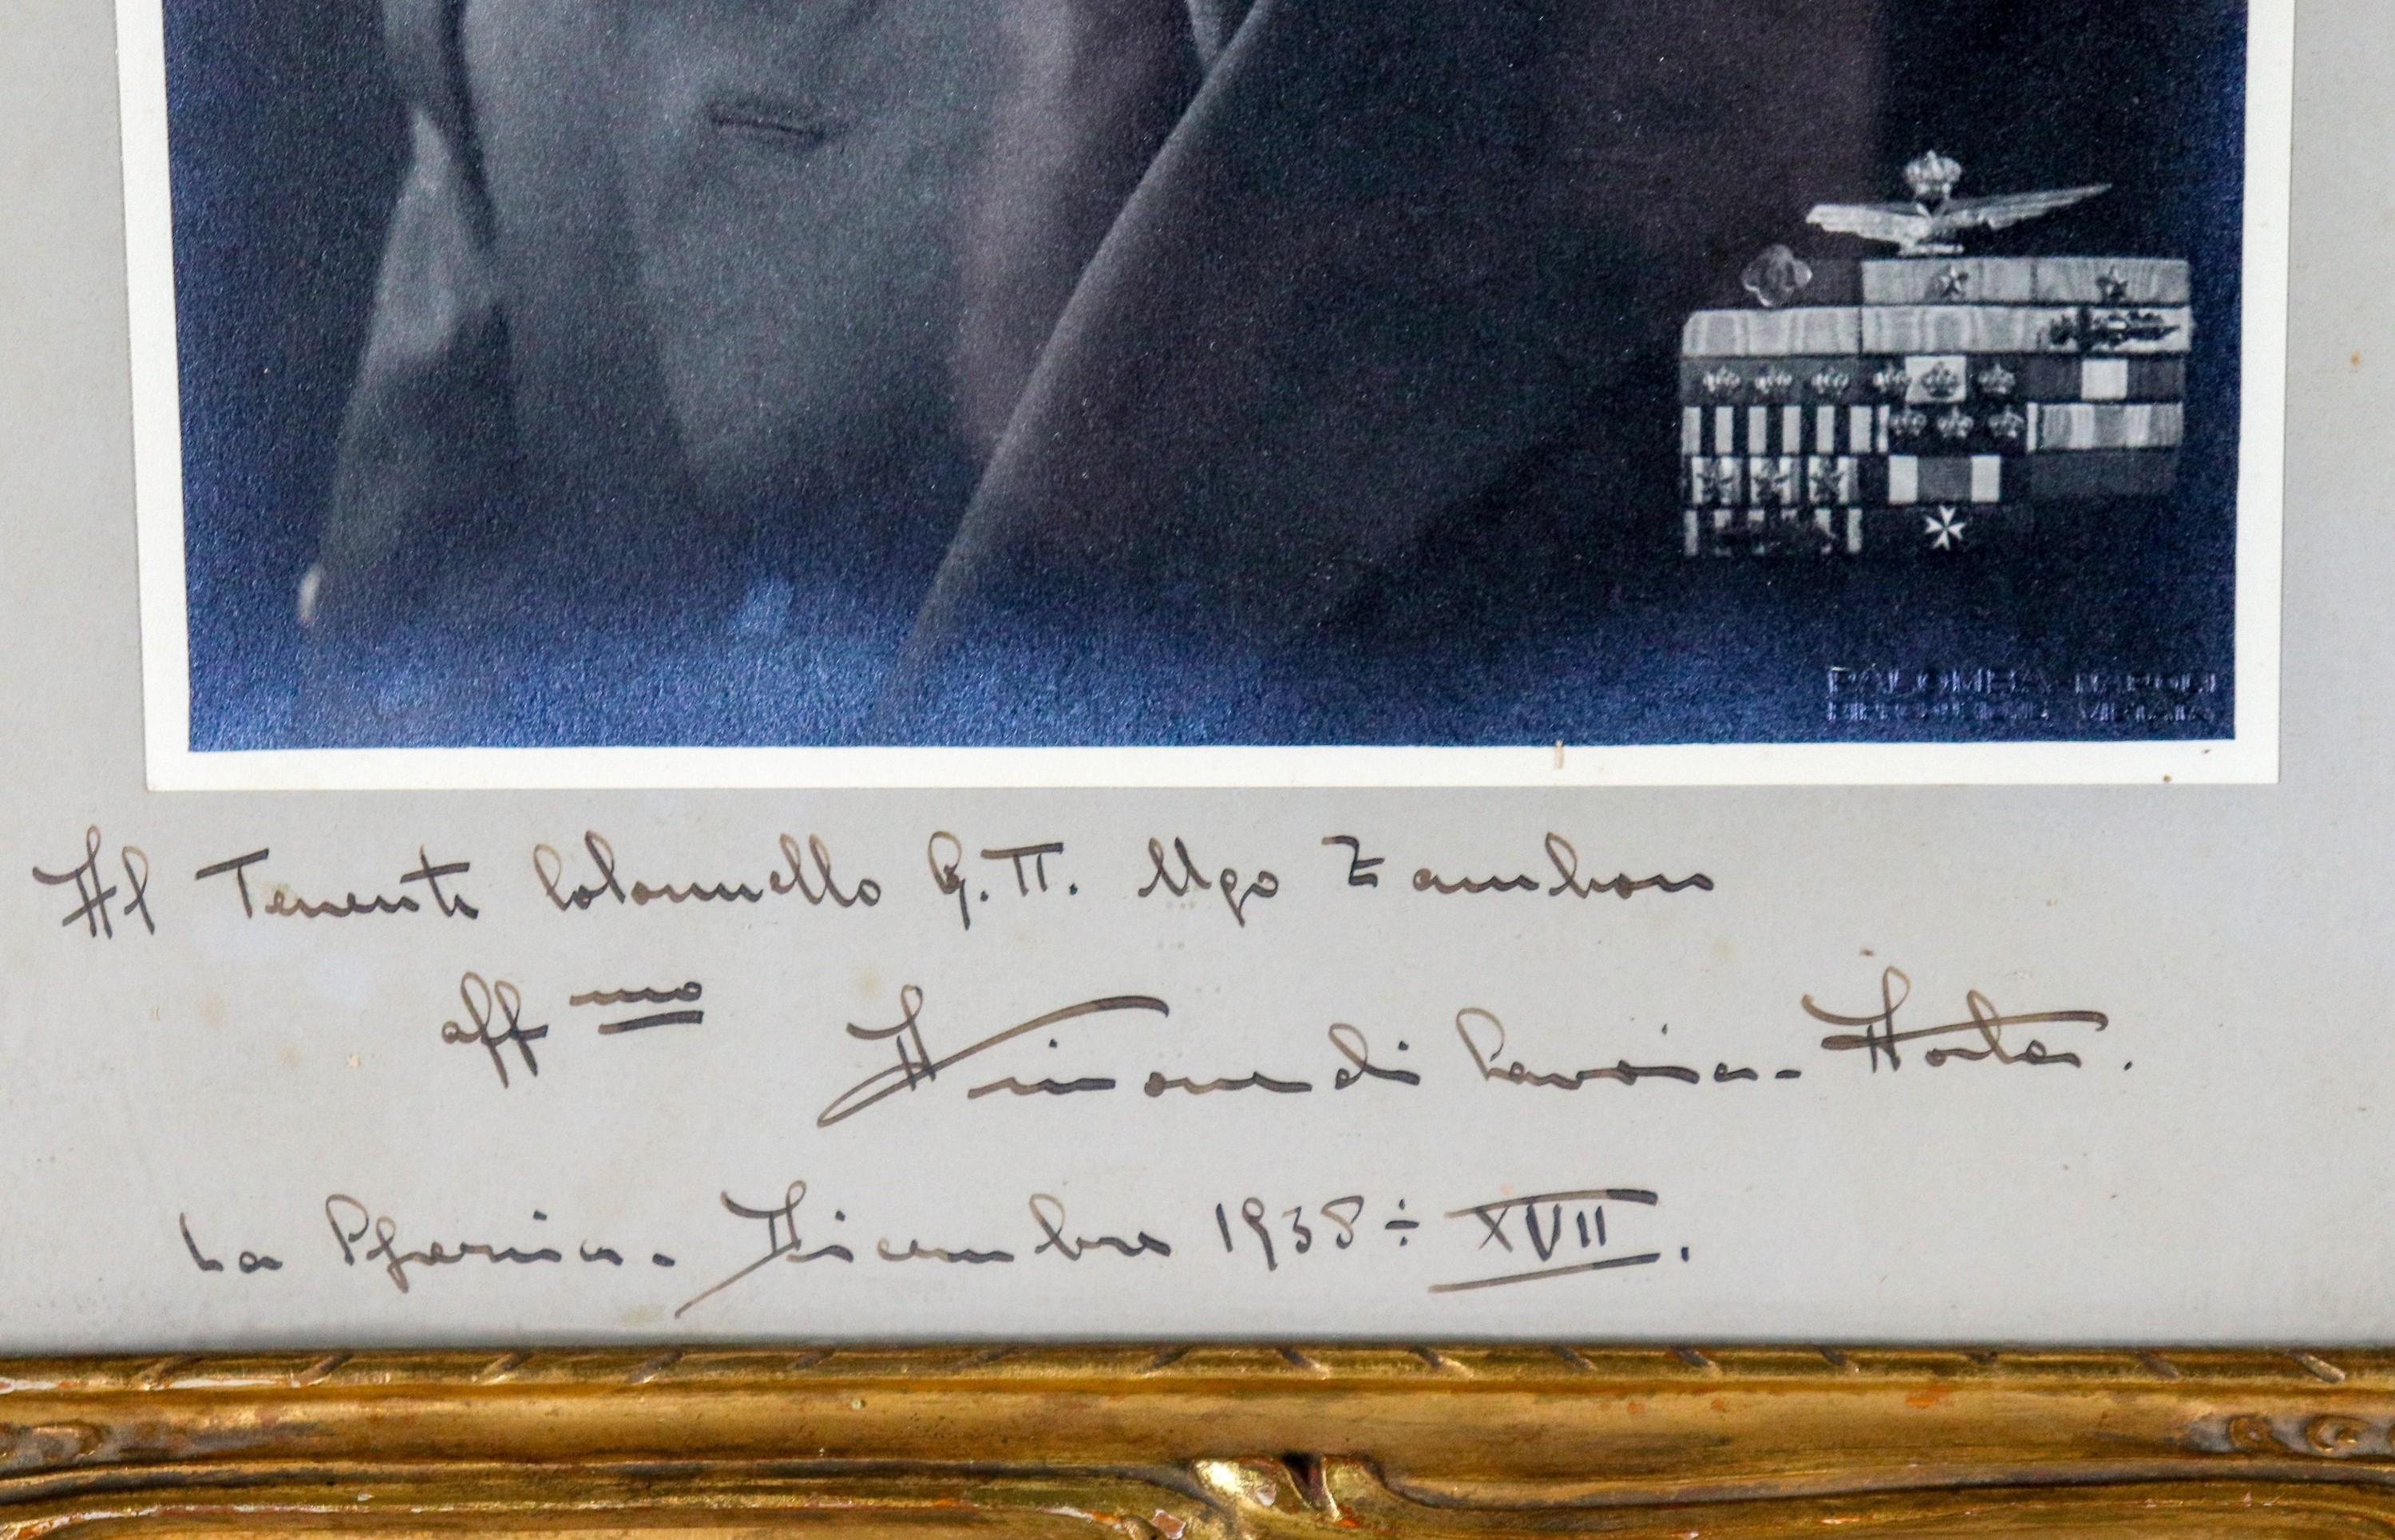 PALOMBA - NAPOLI
Al Tenente Colonnello G.TT. Ugo Zamboni
affmo Aimone di Savoia-Aosta.
La Spezia - Dicembre 1938 ÷ XVII.